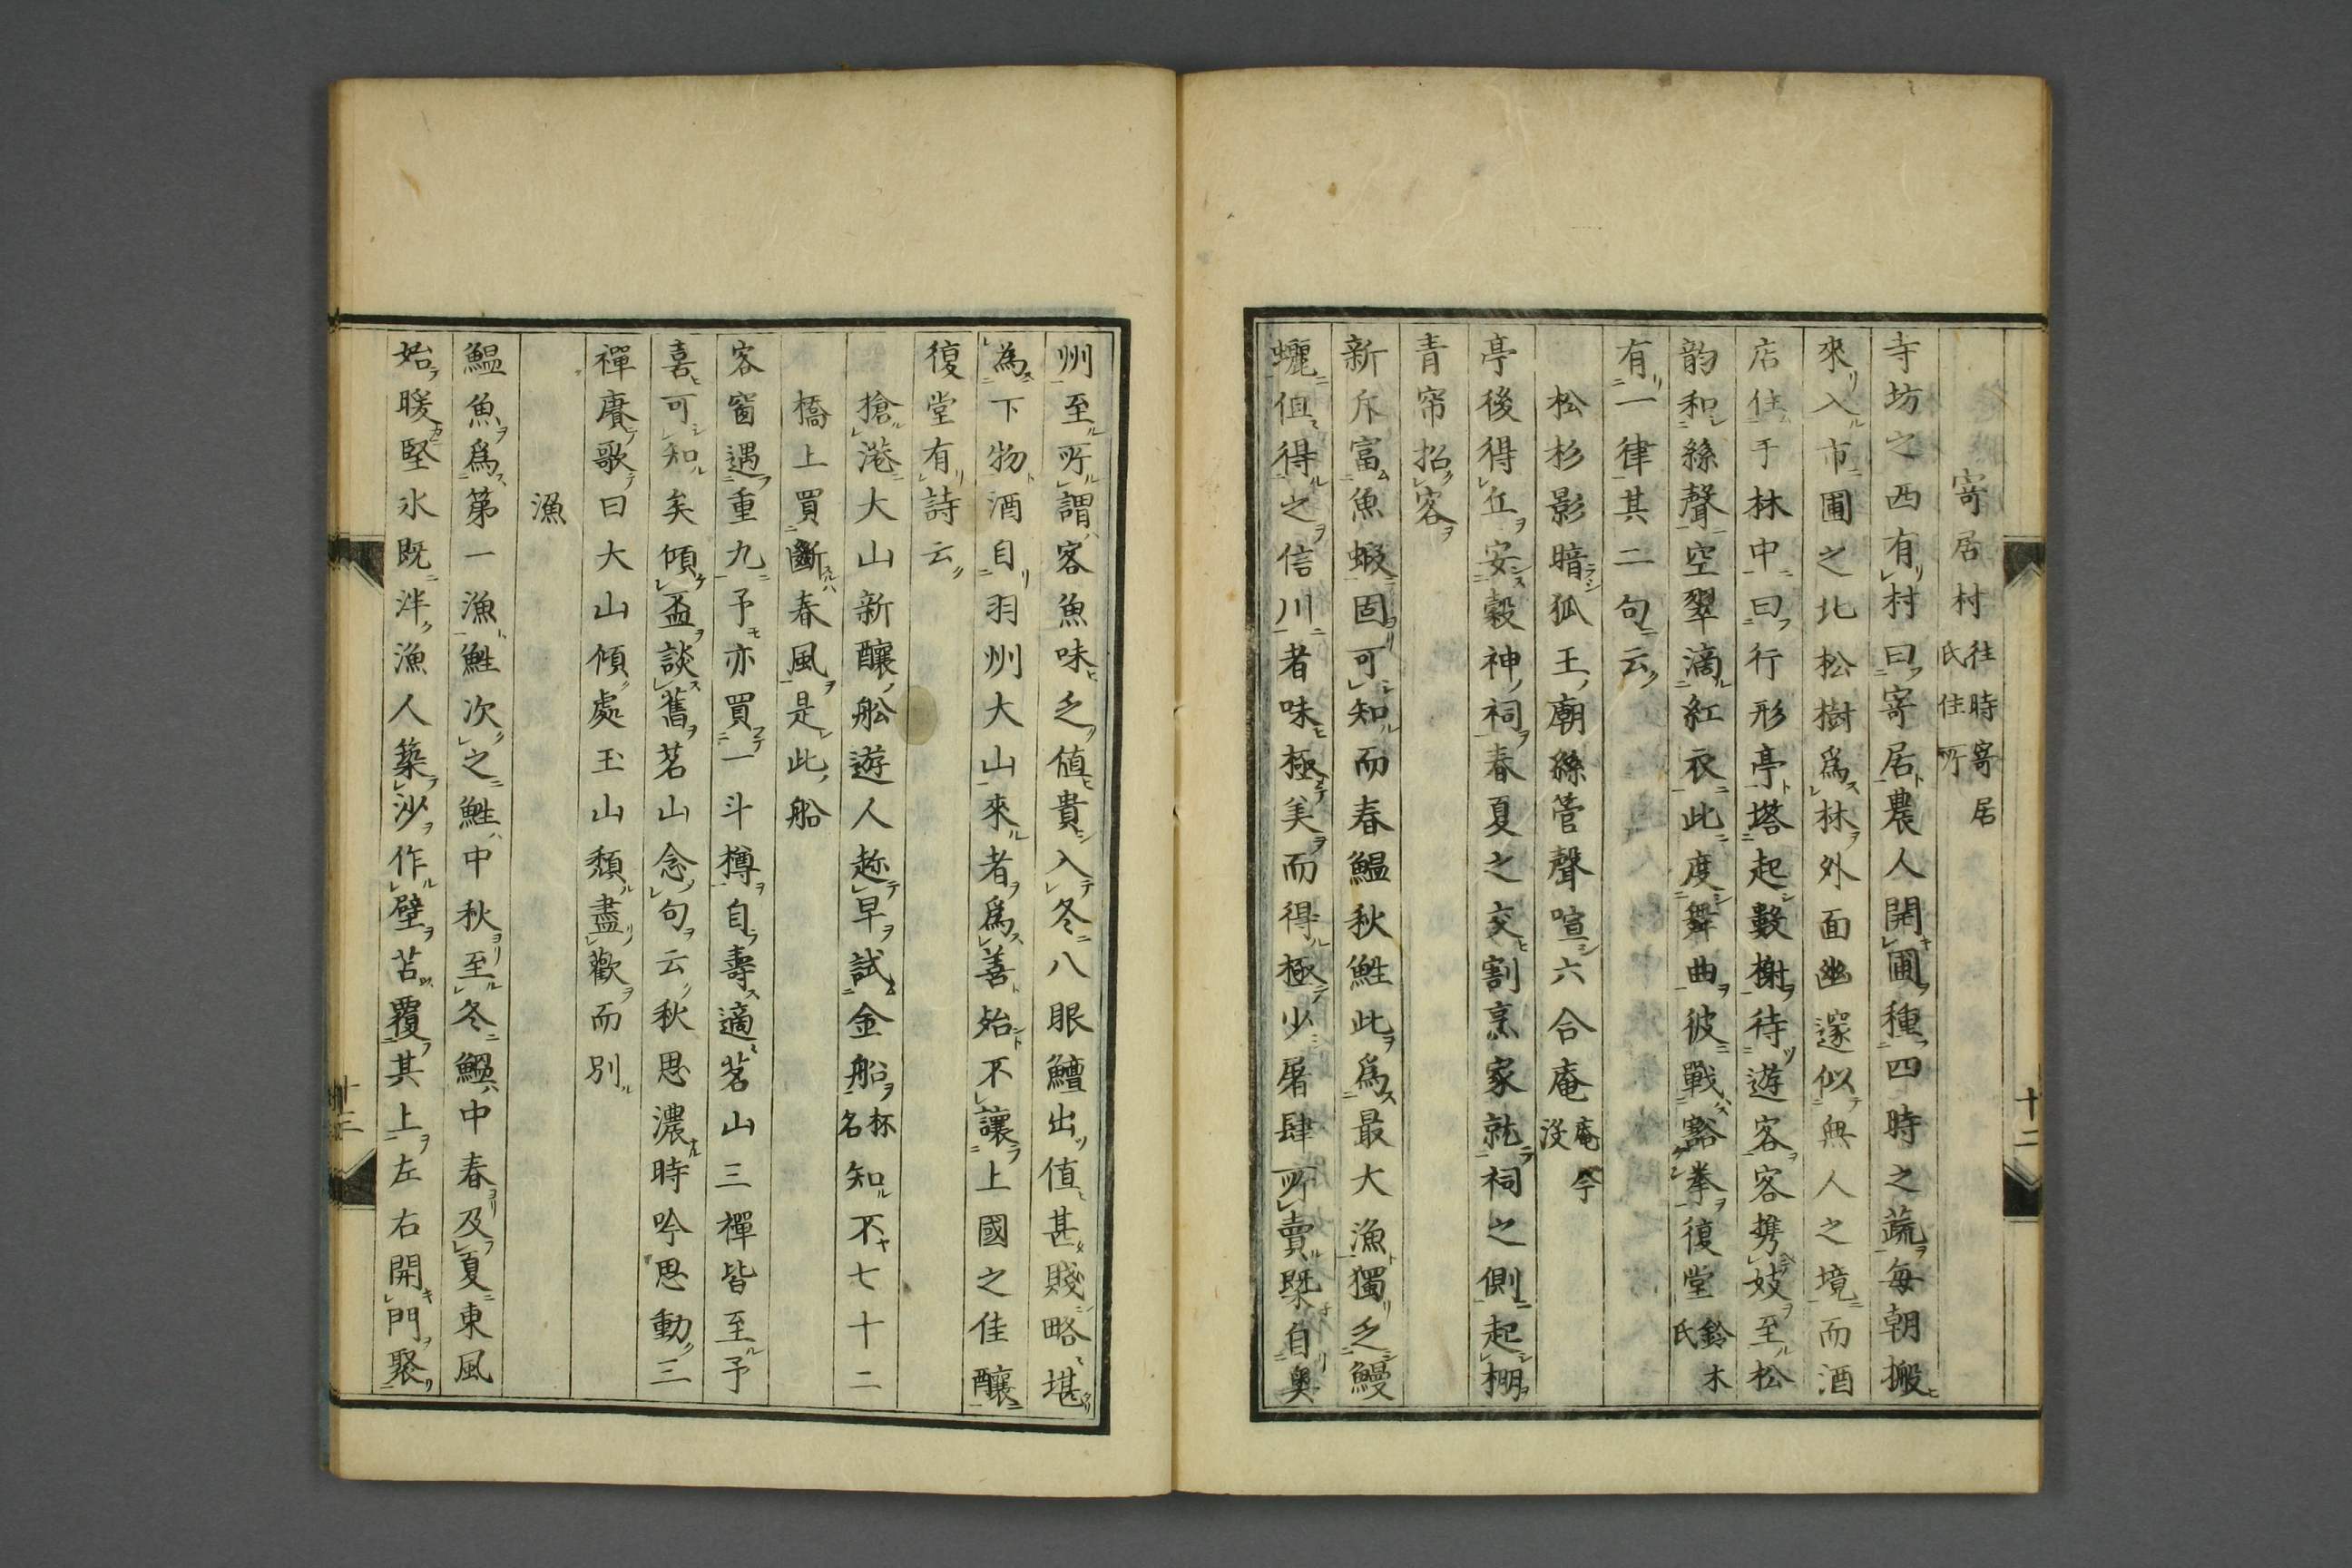 寄居村 往時寄居氏住所
寺坊之西有村曰寄居農人開圃種四時之蔬每朝搬
來入市圃之北松樹爲林外面幽邃似無人之境而酒
店住于林中曰行形亭塔起數榭待遊客客携妓至松
韵和絲聲空翠滴紅衣此度舞曲彼戰豁拳復堂 鈴木氏
有一律其二句云
松杉影暗狐王廟絲管聲喧六合庵 庵今没
亭後得丘安穀神祠春夏之交割烹家就祠之側起棚
青帘招客
新斥富魚蝦固可知而春鰛秋鮏此爲最大漁獨乏鰻
蠣但得之信川者味極美而得極少屠肆所賣槩自奥
十二
州至所謂客魚味乏値貴入冬八眼鱣出値甚賤略堪
為下物酒自羽州大山來者爲善殆不讓上國之佳釀
復堂有詩云
搶港大山新釀舩遊人趂早試金船 杯名 知不七十二
橋上買斷春風是此船
客窗遇重九予亦買一斗樽自壽適茗山三禪皆至予
喜可知矣傾盃談舊茗山念句云秋思濃時吟思動三
禪賡歌曰大山傾處玉山頽盡歡而別
漁
鰛魚爲第一漁鮏次之鮏中秋至冬鰛中春及夏東風
始暖堅氷既泮漁人築沙作壁苫覆其上左右開門聚
十三